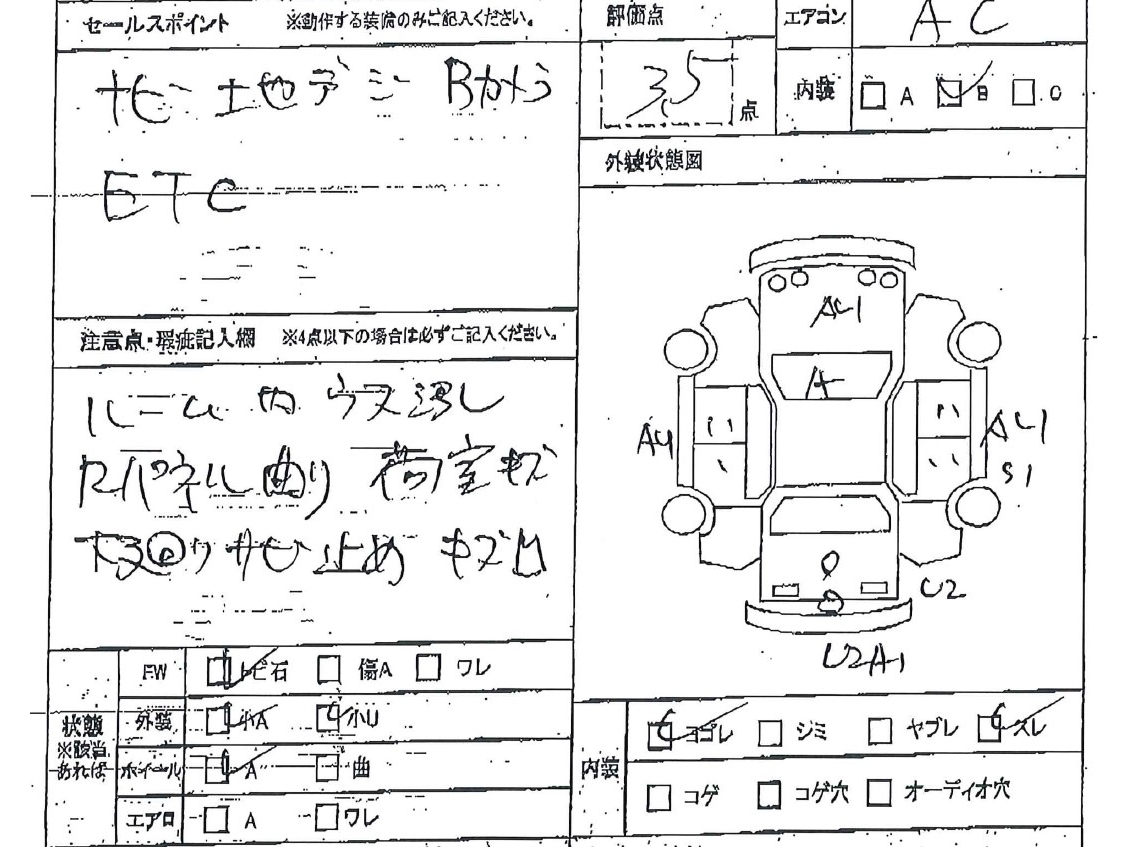 セールスポイント ※動作する装備のみご記入ください。
ナビ 地デジ Bカメラ
ETC
注意点・瑕疵記入欄 ※4点以下の場合は必ずご記入ください。
ルーム内 ウス汚レ
Rパネル曲り 荷室キズ
下回りサビ止め キズ凹
状態
※該当
あれば
FW トビ石 傷A ワレ
外装 小A 小U
ホイール A 曲
エアロ A ワレ
評価点
3.5 点
エアコン AC
内装 A B C
外装状態図
AU1
A
AU
AU1
S1
U2
U2A1
内装 ヨゴレ シミ ヤブレ スレ
コゲ コゲ穴 オーディオ穴